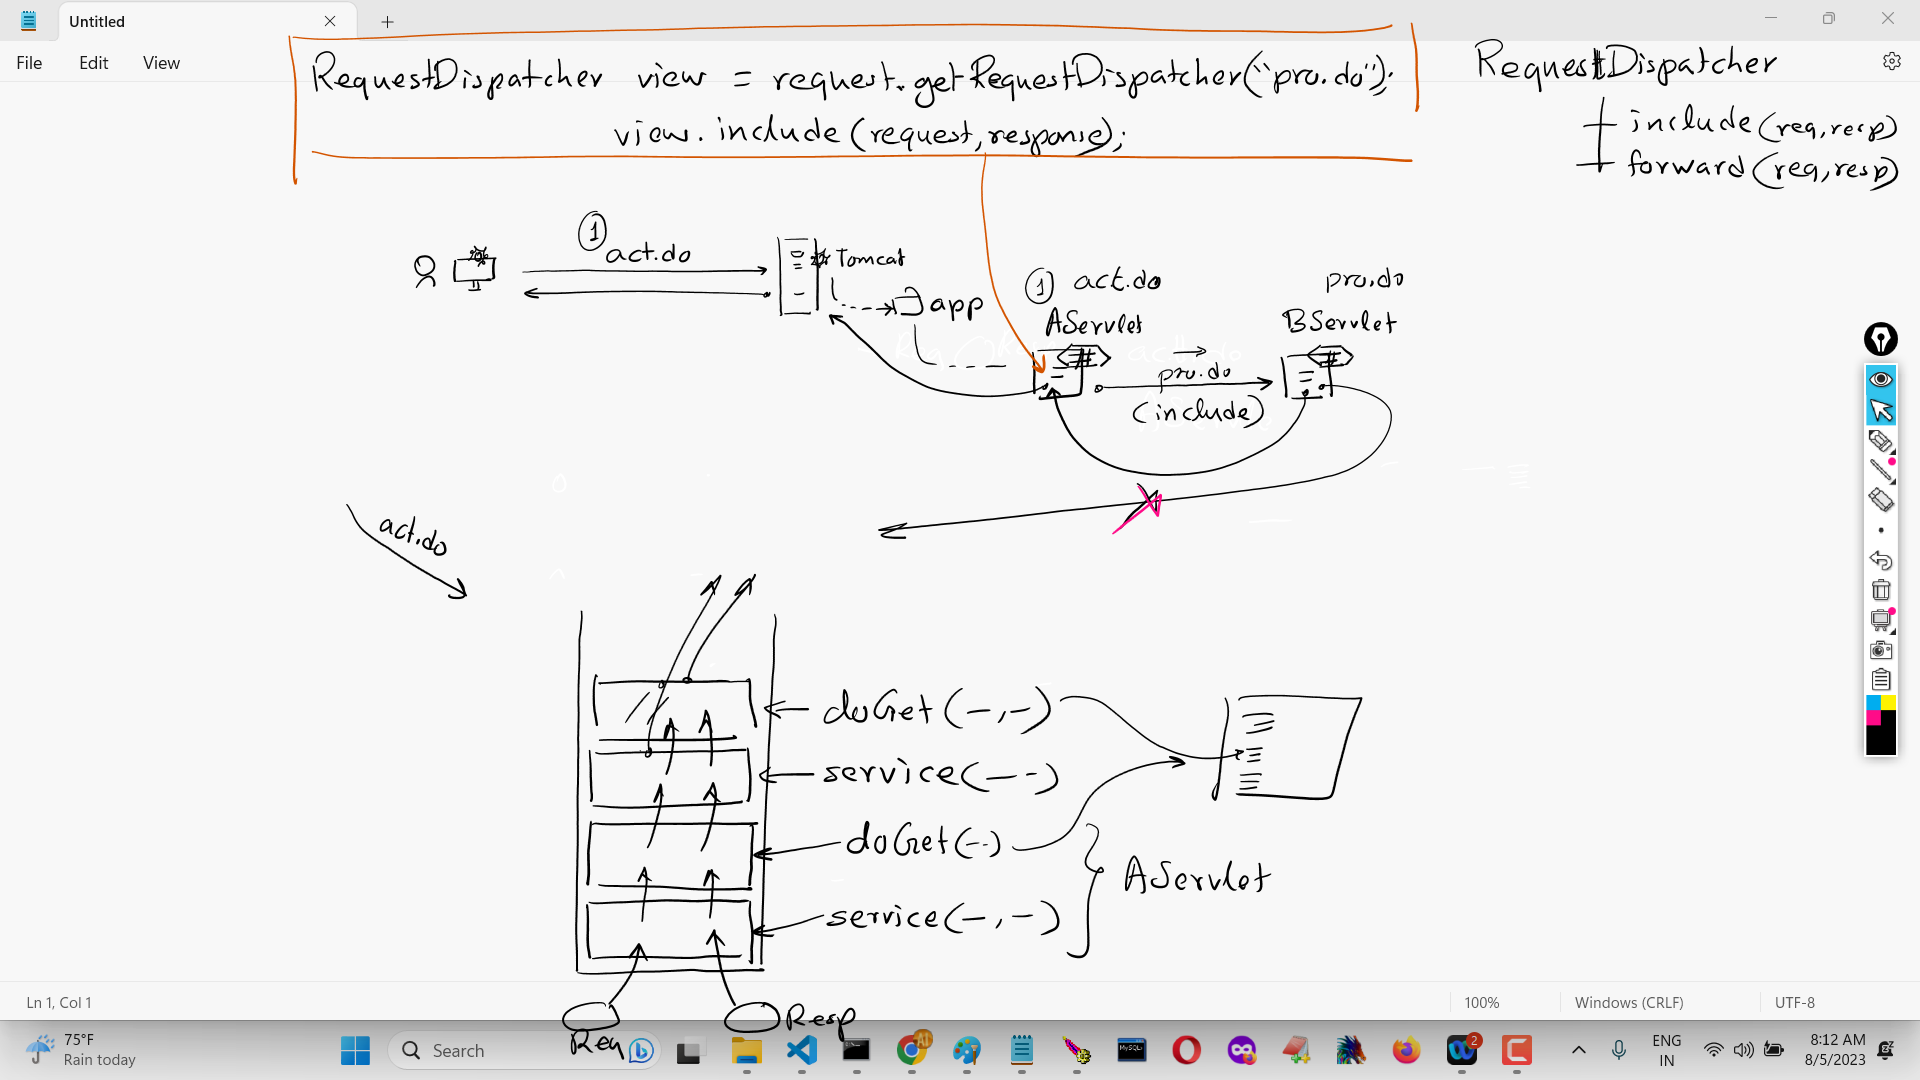 Untitled
File Edit View
RequestDispatcher view = request.getRequestDispatcher("pro.do");
view.include(request,response);
RequestDispatcher
include(req,resp)
forward(req,resp)
1
act.do
Tomcat
app
1 act.do
AServlet
pro.do
BServlet
pro.do
(include)
act.do
doGet(-,-)
service(--)
doGet(--)
AServlet
service(-,-)
Req
Resp
Ln 1, Col 1
100%
Windows (CRLF)
UTF-8
75°F
Rain today
Search
AI
MySQL
2
ENG
IN
8:12 AM
8/5/2023